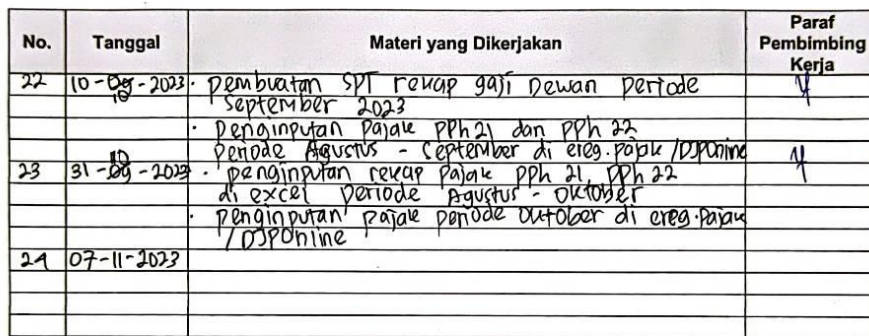 No. Tanggal Materi yang Dikerjakan Paraf Pembimbing Kerja
22 10-10-2023 · pembuatan SPT rekap gaji Dewan periode
September 2023
· Penginputan Pajak PPh 21 dan PPh 22
Periode Agustus - September di ereg.pajak /DJPOnline
23 31-10-2023 · penginputan rekap pajak PPh 21, PPh 22
di excel periode Agustus - Oktober
· penginputan pajak periode Oktober di ereg.Pajak
/ DJPOnline
24 07-11-2023